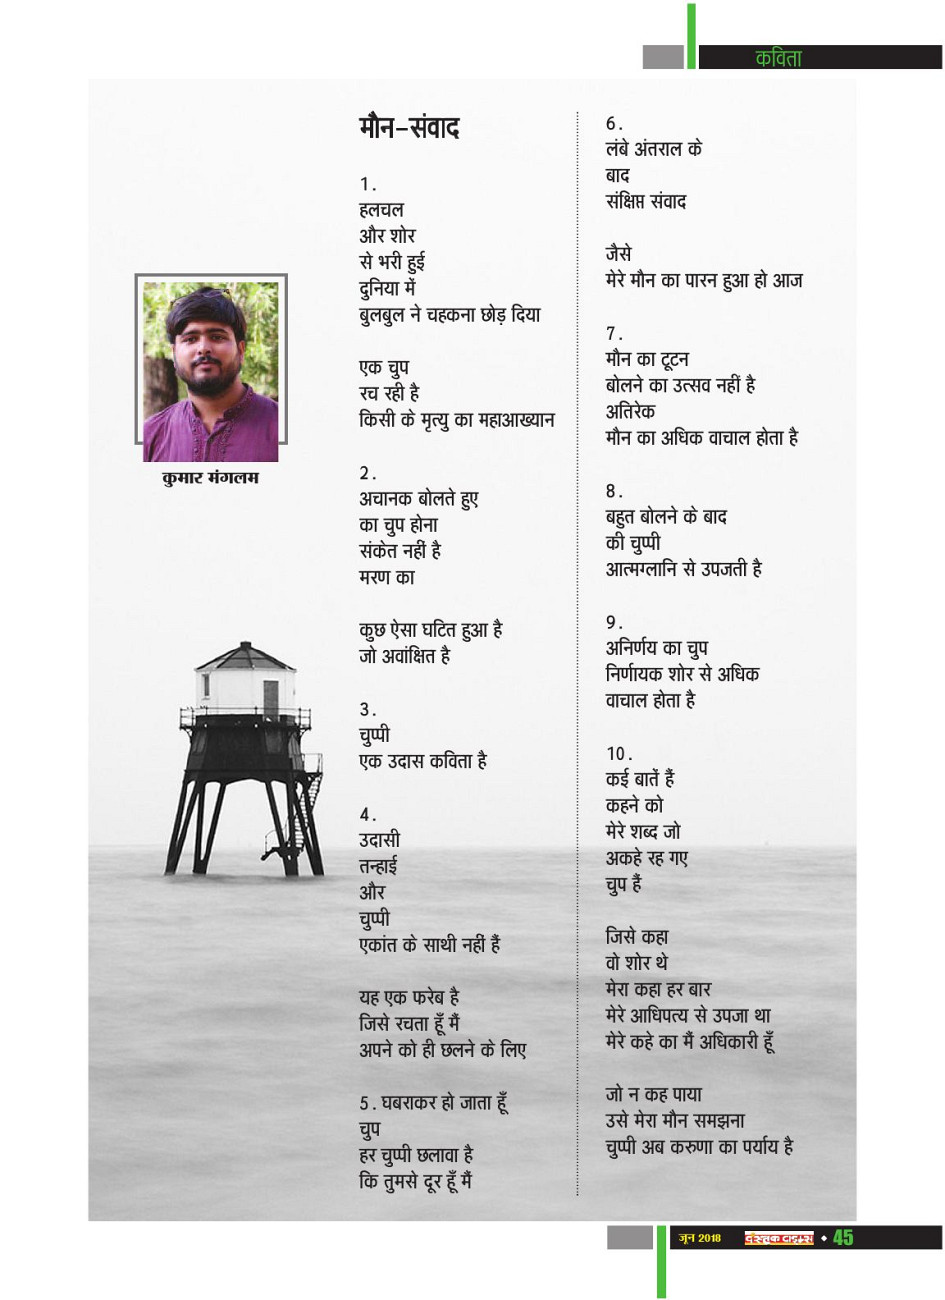 कविता
मौन-संवाद
1.
हलचल
और शोर
से भरी हुई
दुनिया में
बुलबुल ने चहकना छोड़ दिया
एक चुप
रच रही है
किसी के मृत्यु का महाआख्यान
2.
अचानक बोलते हुए
का चुप होना
संकेत नहीं है
मरण का
कुछ ऐसा घटित हुआ है
जो अवांक्षित है
3.
चुप्पी
एक उदास कविता है
4.
उदासी
तन्हाई
और
चुप्पी
एकांत के साथी नहीं हैं
यह एक फरेब है
जिसे रचता हूँ मैं
अपने को ही छलने के लिए
5. घबराकर हो जाता हूँ
चुप
हर चुप्पी छलावा है
कि तुमसे दूर हूँ मैं
6.
लंबे अंतराल के
बाद
संक्षिप्त संवाद
जैसे
मेरे मौन का पारन हुआ हो आज
7.
मौन का टूटन
बोलने का उत्सव नहीं है
अतिरेक
मौन का अधिक वाचाल होता है
8.
बहुत बोलने के बाद
की चुप्पी
आत्मग्लानि से उपजती है
9.
अनिर्णय का चुप
निर्णायक शोर से अधिक
वाचाल होता है
10.
कई बातें हैं
कहने को
मेरे शब्द जो
अकहे रह गए
चुप हैं
जिसे कहा
वो शोर थे
मेरा कहा हर बार
मेरे आधिपत्य से उपजा था
मेरे कहे का मैं अधिकारी हूँ
जो न कह पाया
उसे मेरा मौन समझना
चुप्पी अब करुणा का पर्याय है
कुमार मंगलम
जून 2018 दस्तक टाइम्स • 45